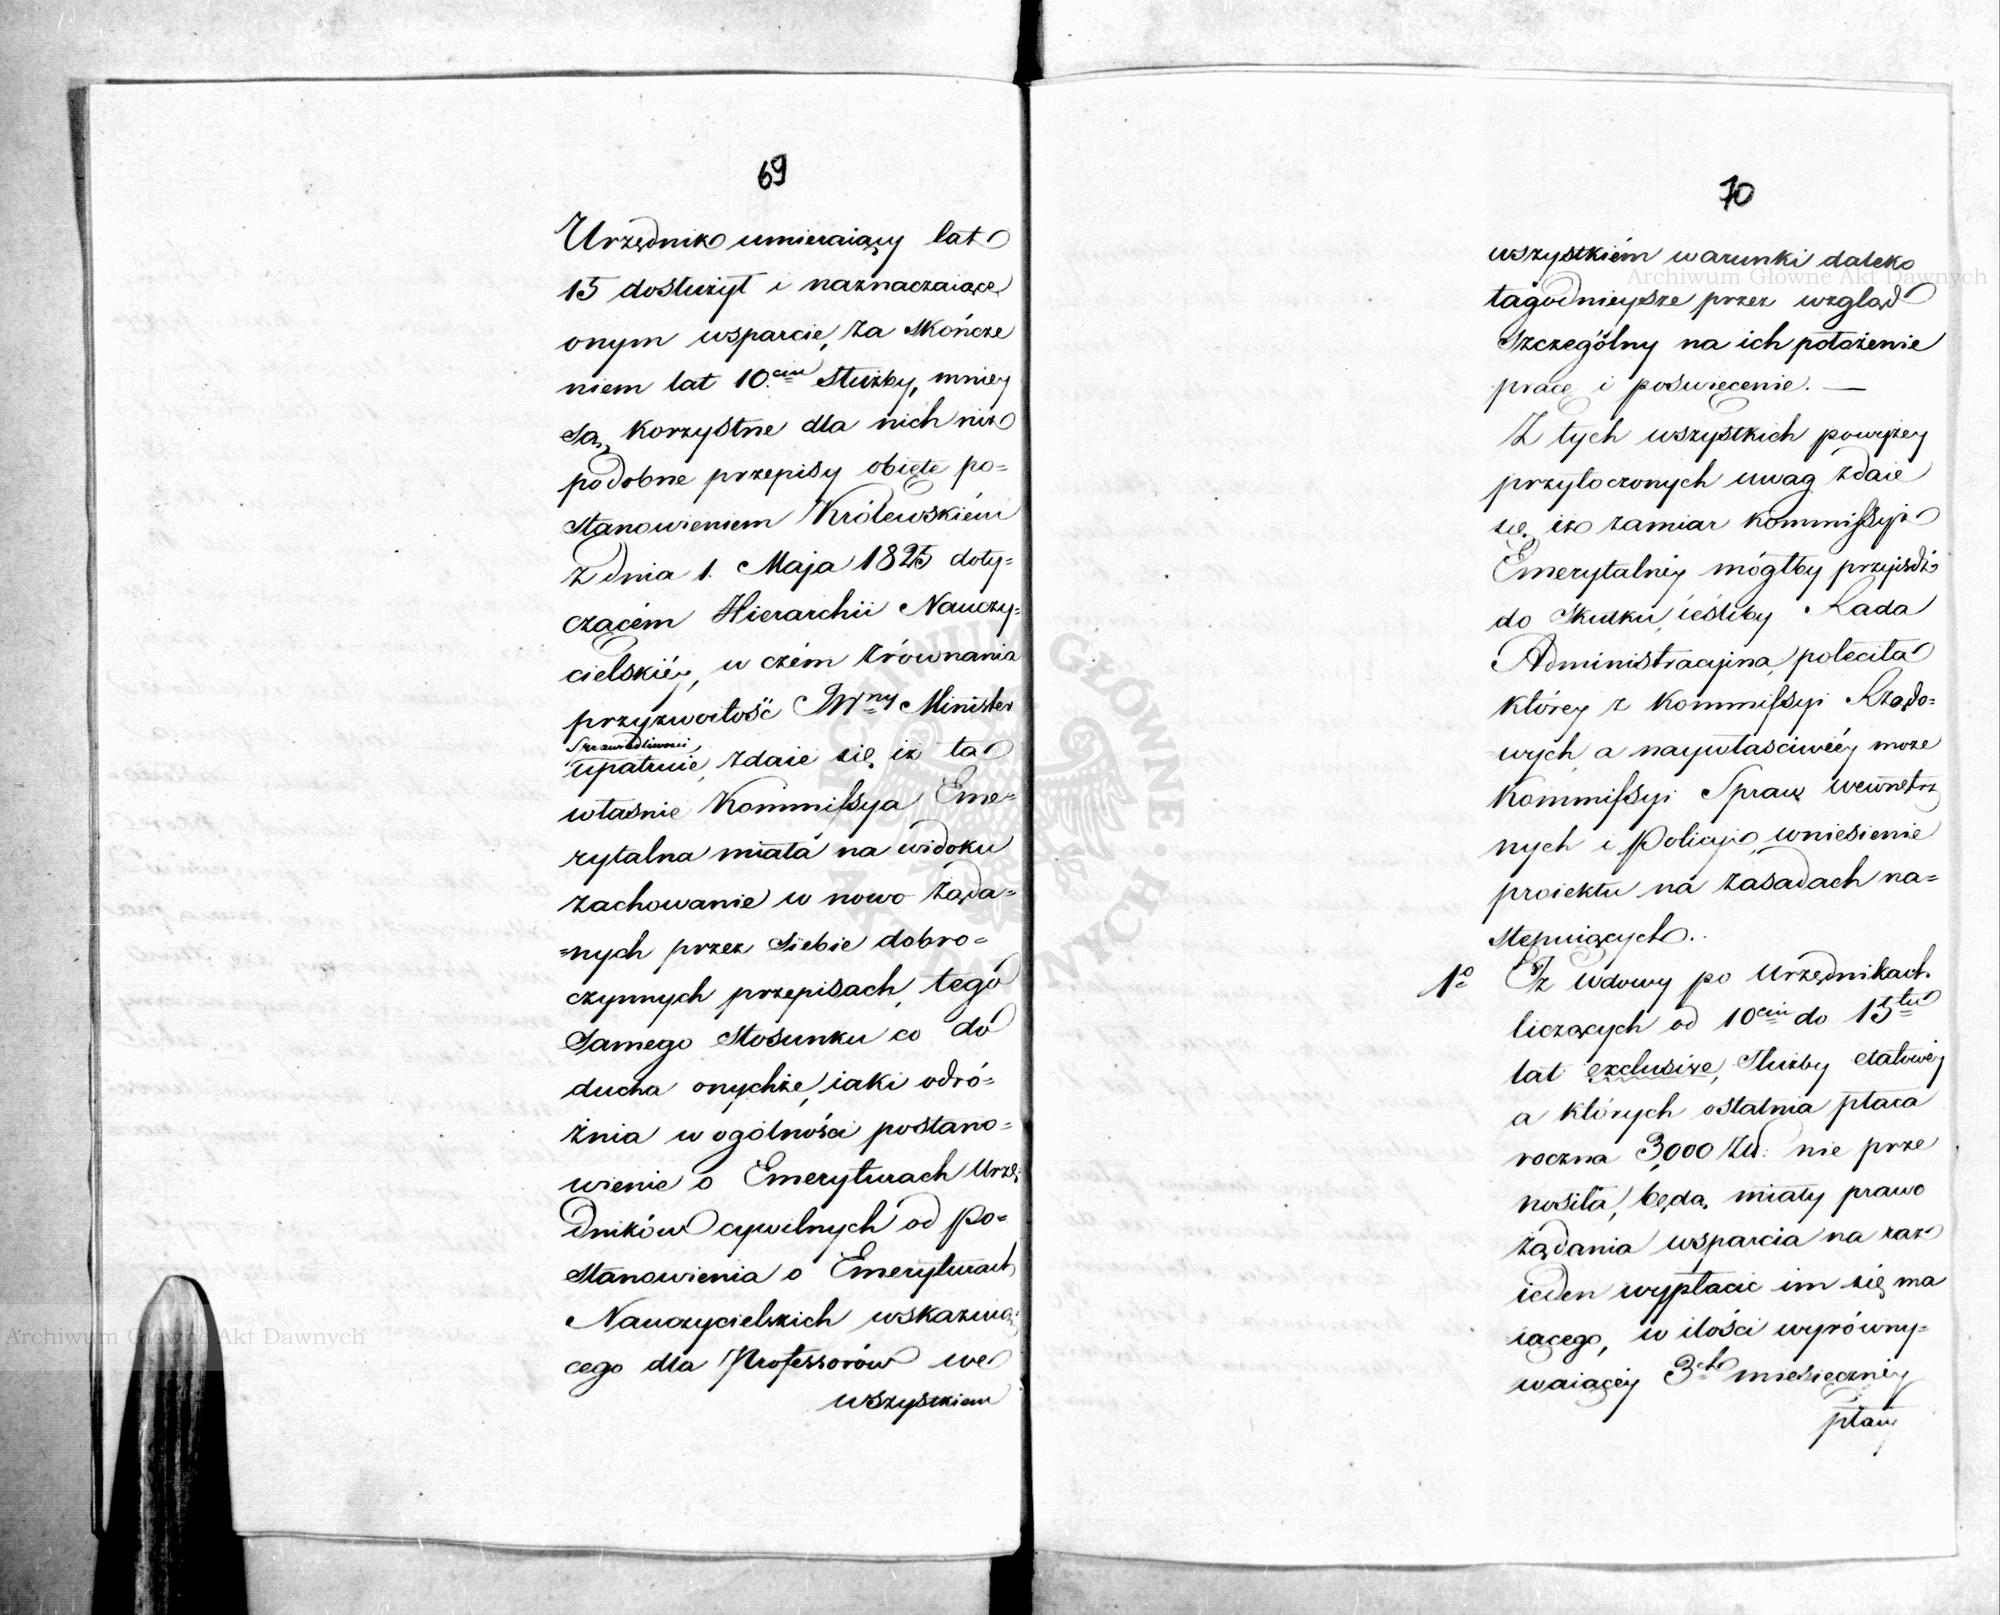 69
Urzędnik umieraiący lat
15 dosłużył i naznaczaiące
onym wsparcie, za skończe
niem lat 10.ciu służby, mniey
są korzystne dla nich niż
podobne przepisy obięte po=
stanowieniem Królewskiém
z dnia 1. Maja 1825 doty=
czącém Hierarchii Nauczy=
cielskiéy, w czém zrównania
przyzwoitość JWny Minister
Sprawiedliwości
upatruie, zdaie się iż ta
właśnie Kommissya Eme=
rytalna miała na widoku
zachowanie w nowo żąda=
=nych przez siebie dobro=
czynnych przepisach, tego
samego stosunku co do
ducha onychże, iaki odró=
żnia w ogólności postano=
wienie o Emeryturach Urzę=
dników cywilnych od Po=
stanowienia o Emeryturach
Nauczycielskich wskazuią=
cego dla Professorów we
wszystkiem
70
wszystkiém warunki daleko
łagodnieysze przez wzgląd
szczególny na ich położenie
pracę i poświęcenie. —
Z tych wszystkich powyżey
przytoczonych uwag zdaie
się iż zamiar Kommissyi
Emerytalnéy mógłby przyiśdź
do skutku, ieśliby Rada
Administracyjna, poleciła
którey z Kommissyi Rządo=
=wych a naywłaściwiéy może
Kommissyi Spraw wewnętrz
nych i Policyi, wniesienie
proiektu na zasadach na=
stępuiących.
1o Iż wdowy po Urzędnikach
liczących od 10ciu do 15tu
lat exclusive, Służby etatowéy
a których ostatnia płaca
roczna 3,000 Złł: nie prze
nosiła, będą miały prawo
żądania wsparcia na raz
ieden wypłacić im się ma
iącego, w ilości wyrówny=
waiącéy 3ch miesięcznéy
płacy
Archiwum Główne Akt Dawnych
Archiwum Główne Akt Dawnych
ARCHIWUM GŁÓWNE AKT DAWNYCH